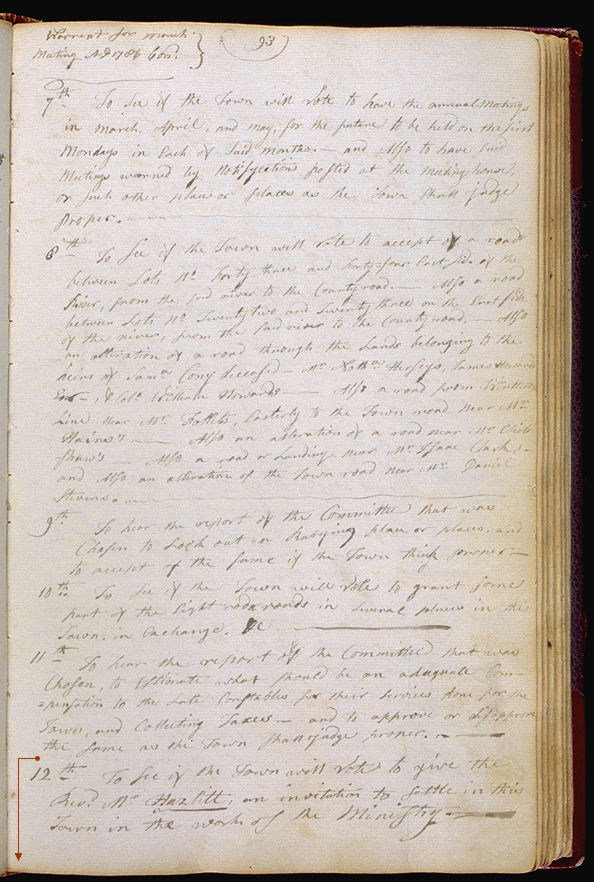 Warrent for march
Meeting AD 1786 Con.
93
7th To See if the Town will Vote to have the annual Meetings
in march, April, and may, for the future to be held on the first
Mondays in Each of Said months. — and Also to have Said
Meetings warned by Notifycations posted at the Meeting house,
or such other place or places as the Town Shall judge
Proper.
8th To See if the Town will vote to accept of a road
between Lots No. forty three and forty four East side of the
River, from the said river to the County road. — Also a road
between Lots No. Twenty two, and Twenty three on the East side
of the river, from the said river to the County road. — Also
an alteration of a road through the Lands belonging to the
heirs of Saml. Cony deceased — Mr. Nathl. Herseys, James Howard
Esr. & Colo. William Howards — Also a road from
line near Mr. Follets, Easterly to the Town road near Mr.
Hains's — Also an alteration of a road near Mr.
Shaw's — Also a road or Landing near Mr. Isaac Clark,
and Also an alteration of the Town road near Mr. Daniel
Stevens.
9th To hear the report of the Committee that was
Chosen to Look out a Burying place or places, and
to accept of the same if the Town think proper —
10th To See if the Town will Vote to grant some
part of the Eight rod roads in several places in the
Town, in Exchange. &c
11th To hear the report of the Committee that was
Chosen, to Estimate what should be an adequate Com-
=pensation to the Late Constables for their Services done for the
Town, and Collecting Taxes — and to approve or disapprove
the same as the Town shall judge proper. —
12th To See if the Town will vote to give the
Revd. Mr. Hazlitt, an invitation to settle in this
Town in the work of the Ministry. —